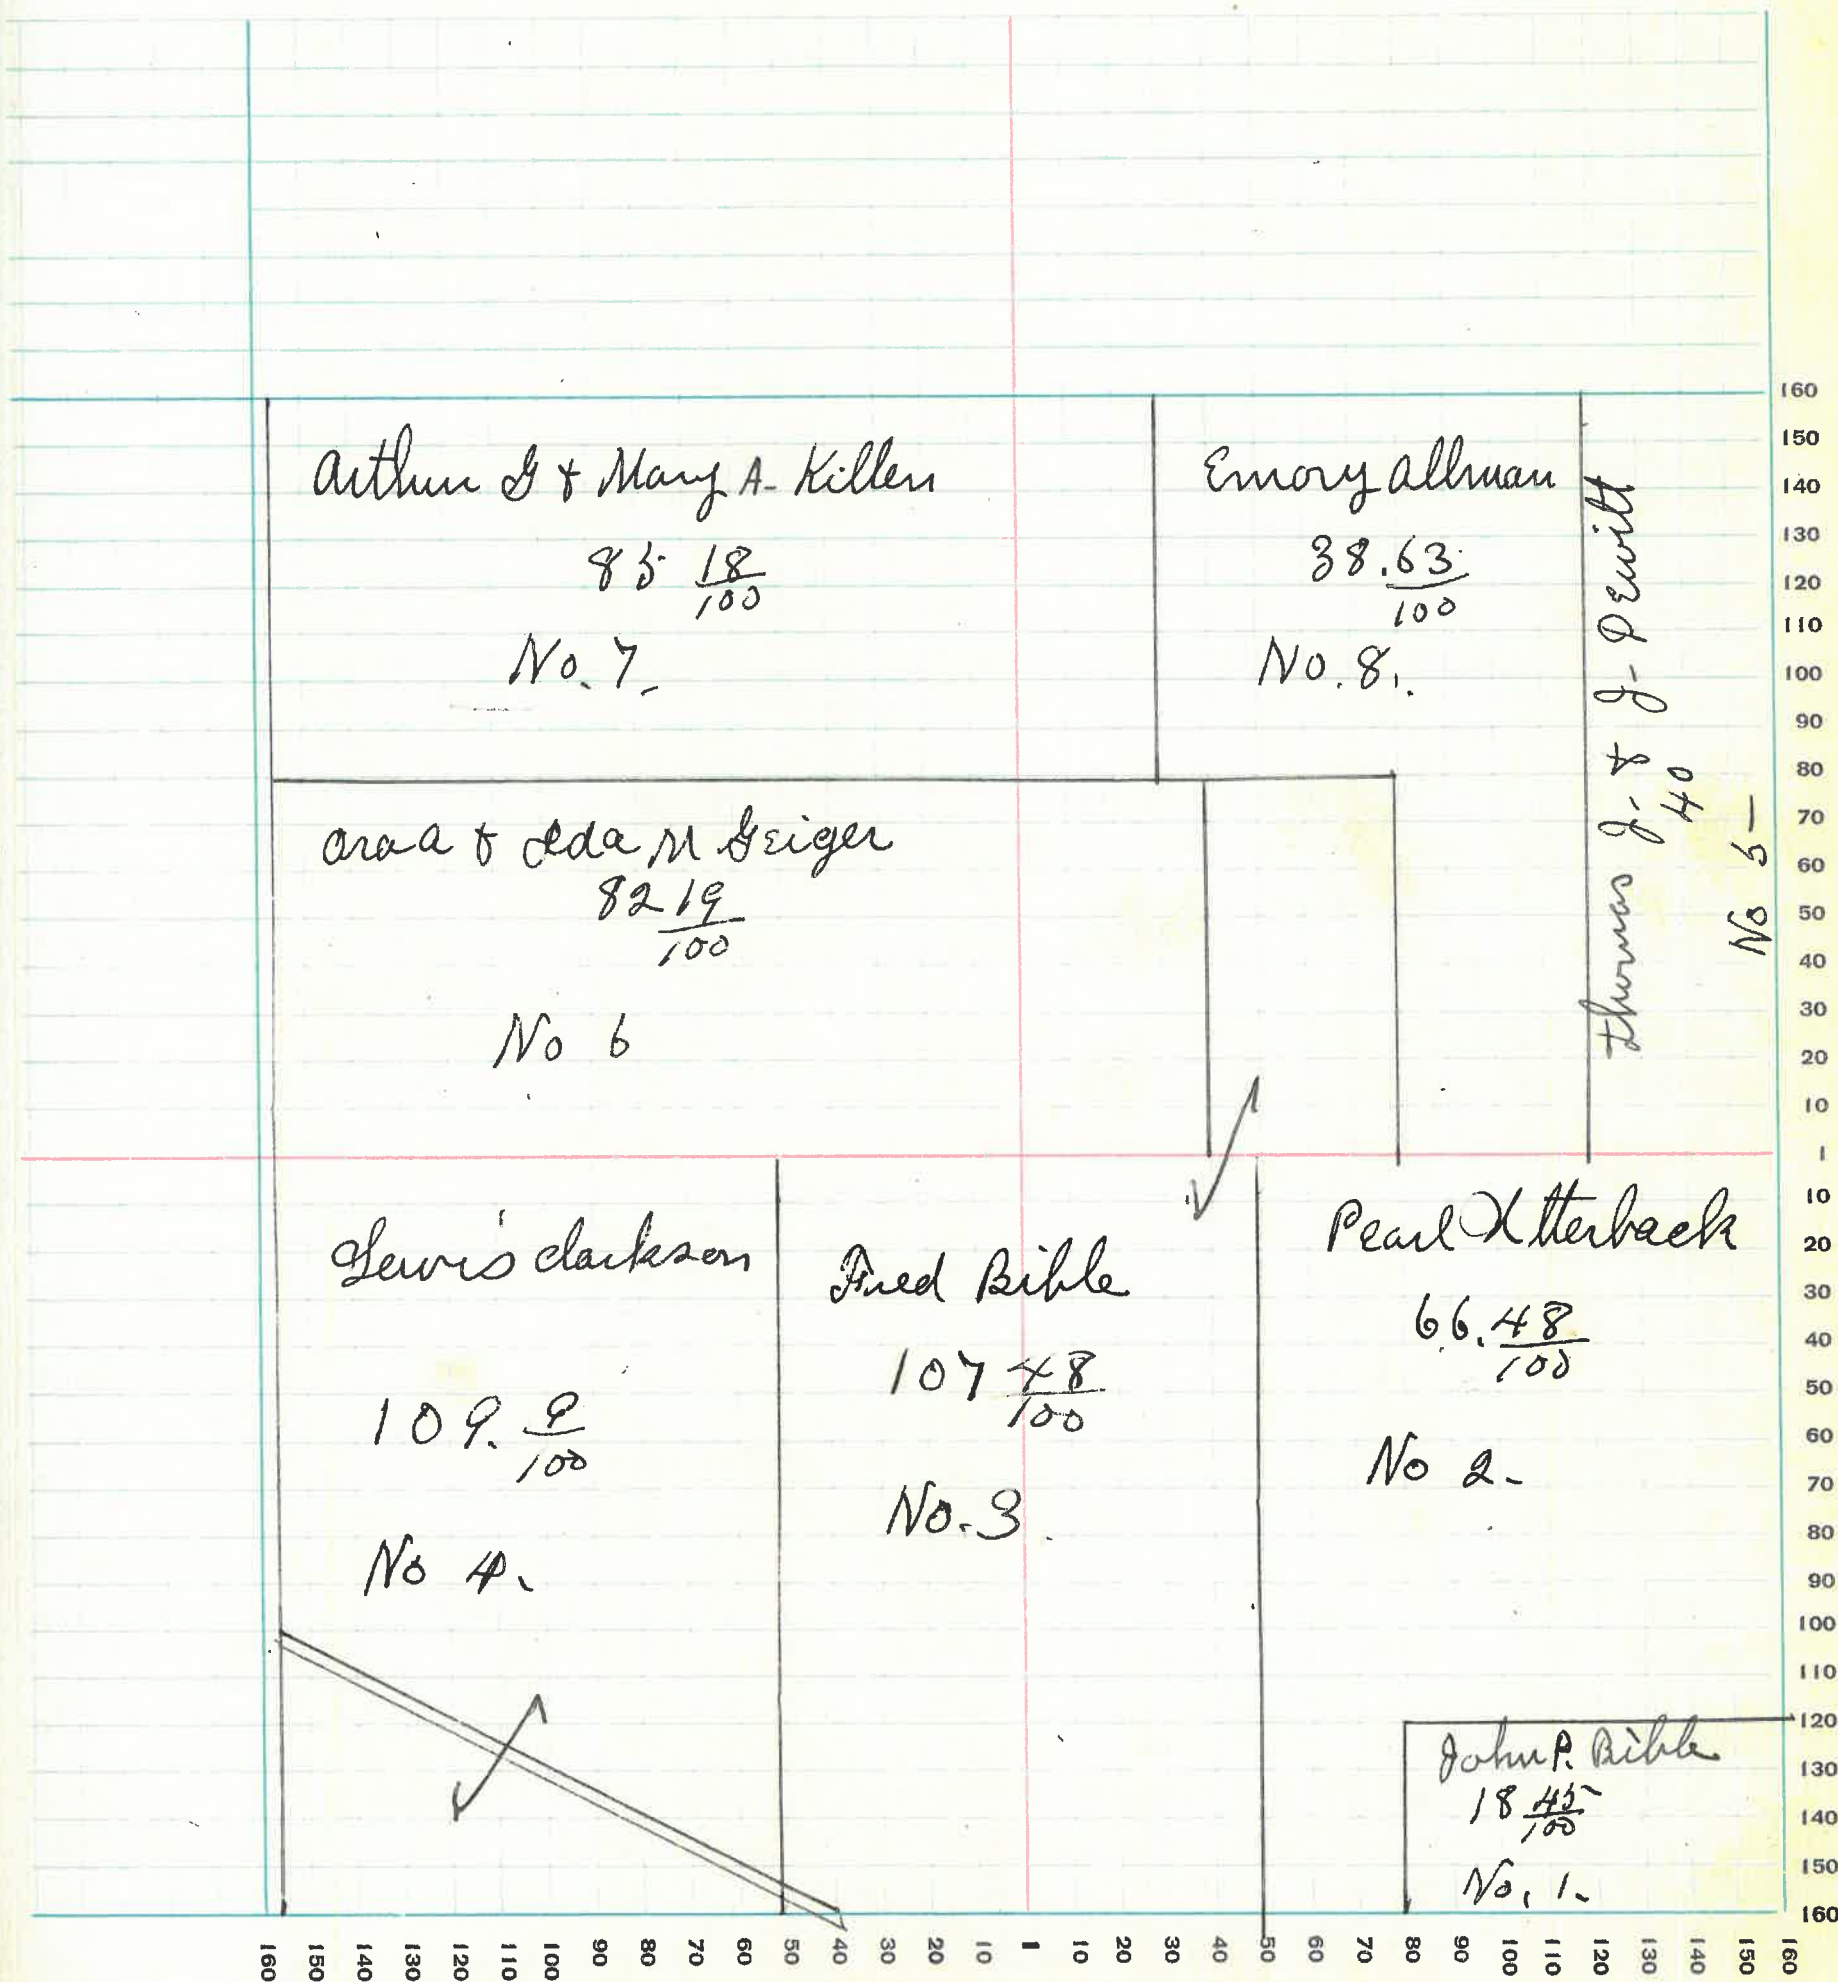 Arthur G & Mary A- Killen
85 18/100
No. 7.
Emory Allman
38.63/100
No. 8.
Thomas J. & J- Pewitt
40
No 5-
Ora A & Ida M Geiger
82 19/100
No 6
Lewis Clarkson
109. 9/100
No 4.
Fred Bible
107 48/100
No. 3.
Pearl Utterback
66.48/100
No 2-
John P. Bible
18 45/100
No. 1.
160
150
140
130
120
110
100
90
80
70
60
50
40
30
20
10
1
10
20
30
40
50
60
70
80
90
100
110
120
130
140
150
160
160 150 140 130 120 110 100 90 80 70 60 50 40 30 20 10 1 10 20 30 40 50 60 70 80 90 100 110 120 130 140 150 160